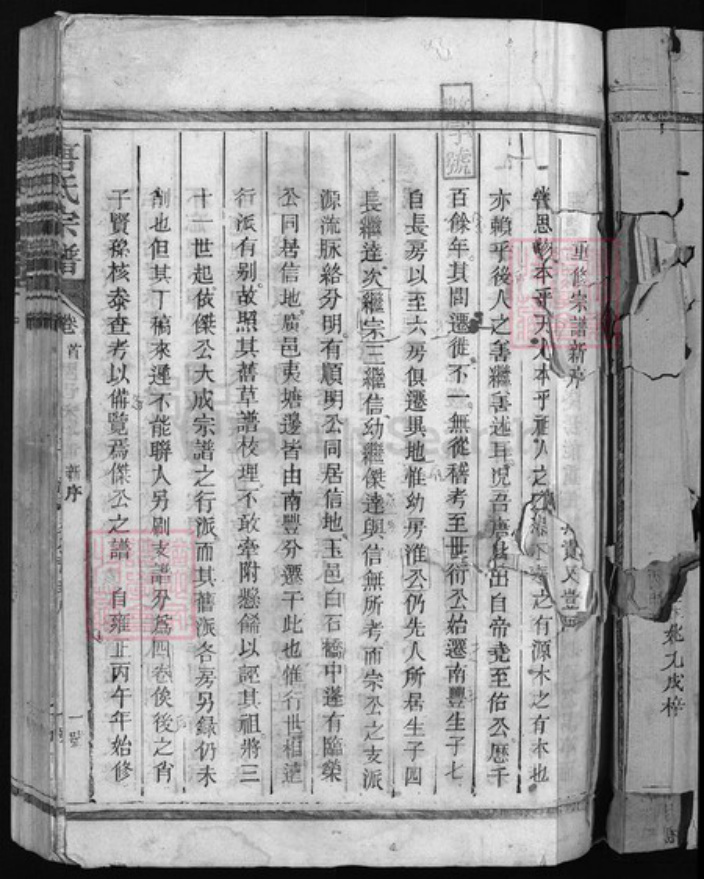 重修宗譜新序
嘗思物本乎天人本乎祖人之有源木之有本也
亦賴乎後人之善繼善述耳況吾唐氏出自帝堯至佑公歷千
百餘年其間遷徙不一無從稽考至世衍公始遷南豐生子七
自長房以至六房俱遷異地惟幼房淮公仍先人所居生子四
長繼達次繼宗三繼信幼繼傑達與信無所考而宗公之支派
源流脉絡分明有順明公同居信地玉邑白石橋中蓬有臨榮
公同居信地廣邑夷塘邊皆由南豐分遷于此也惟行世相遠
行派有别故照其舊草譜校理不敢牽附懸籥以誣其祖將三
十一世起依傑公大成宗譜之行派而其舊派各房另録仍未
削也但其丁稿來遲不能聯入另刷支譜分爲四卷俟後之肖
子賢孫核泰查考以備覽焉傑公之譜 自雍正丙午年始修
唐氏宗譜
卷首
新序
一
號
字號